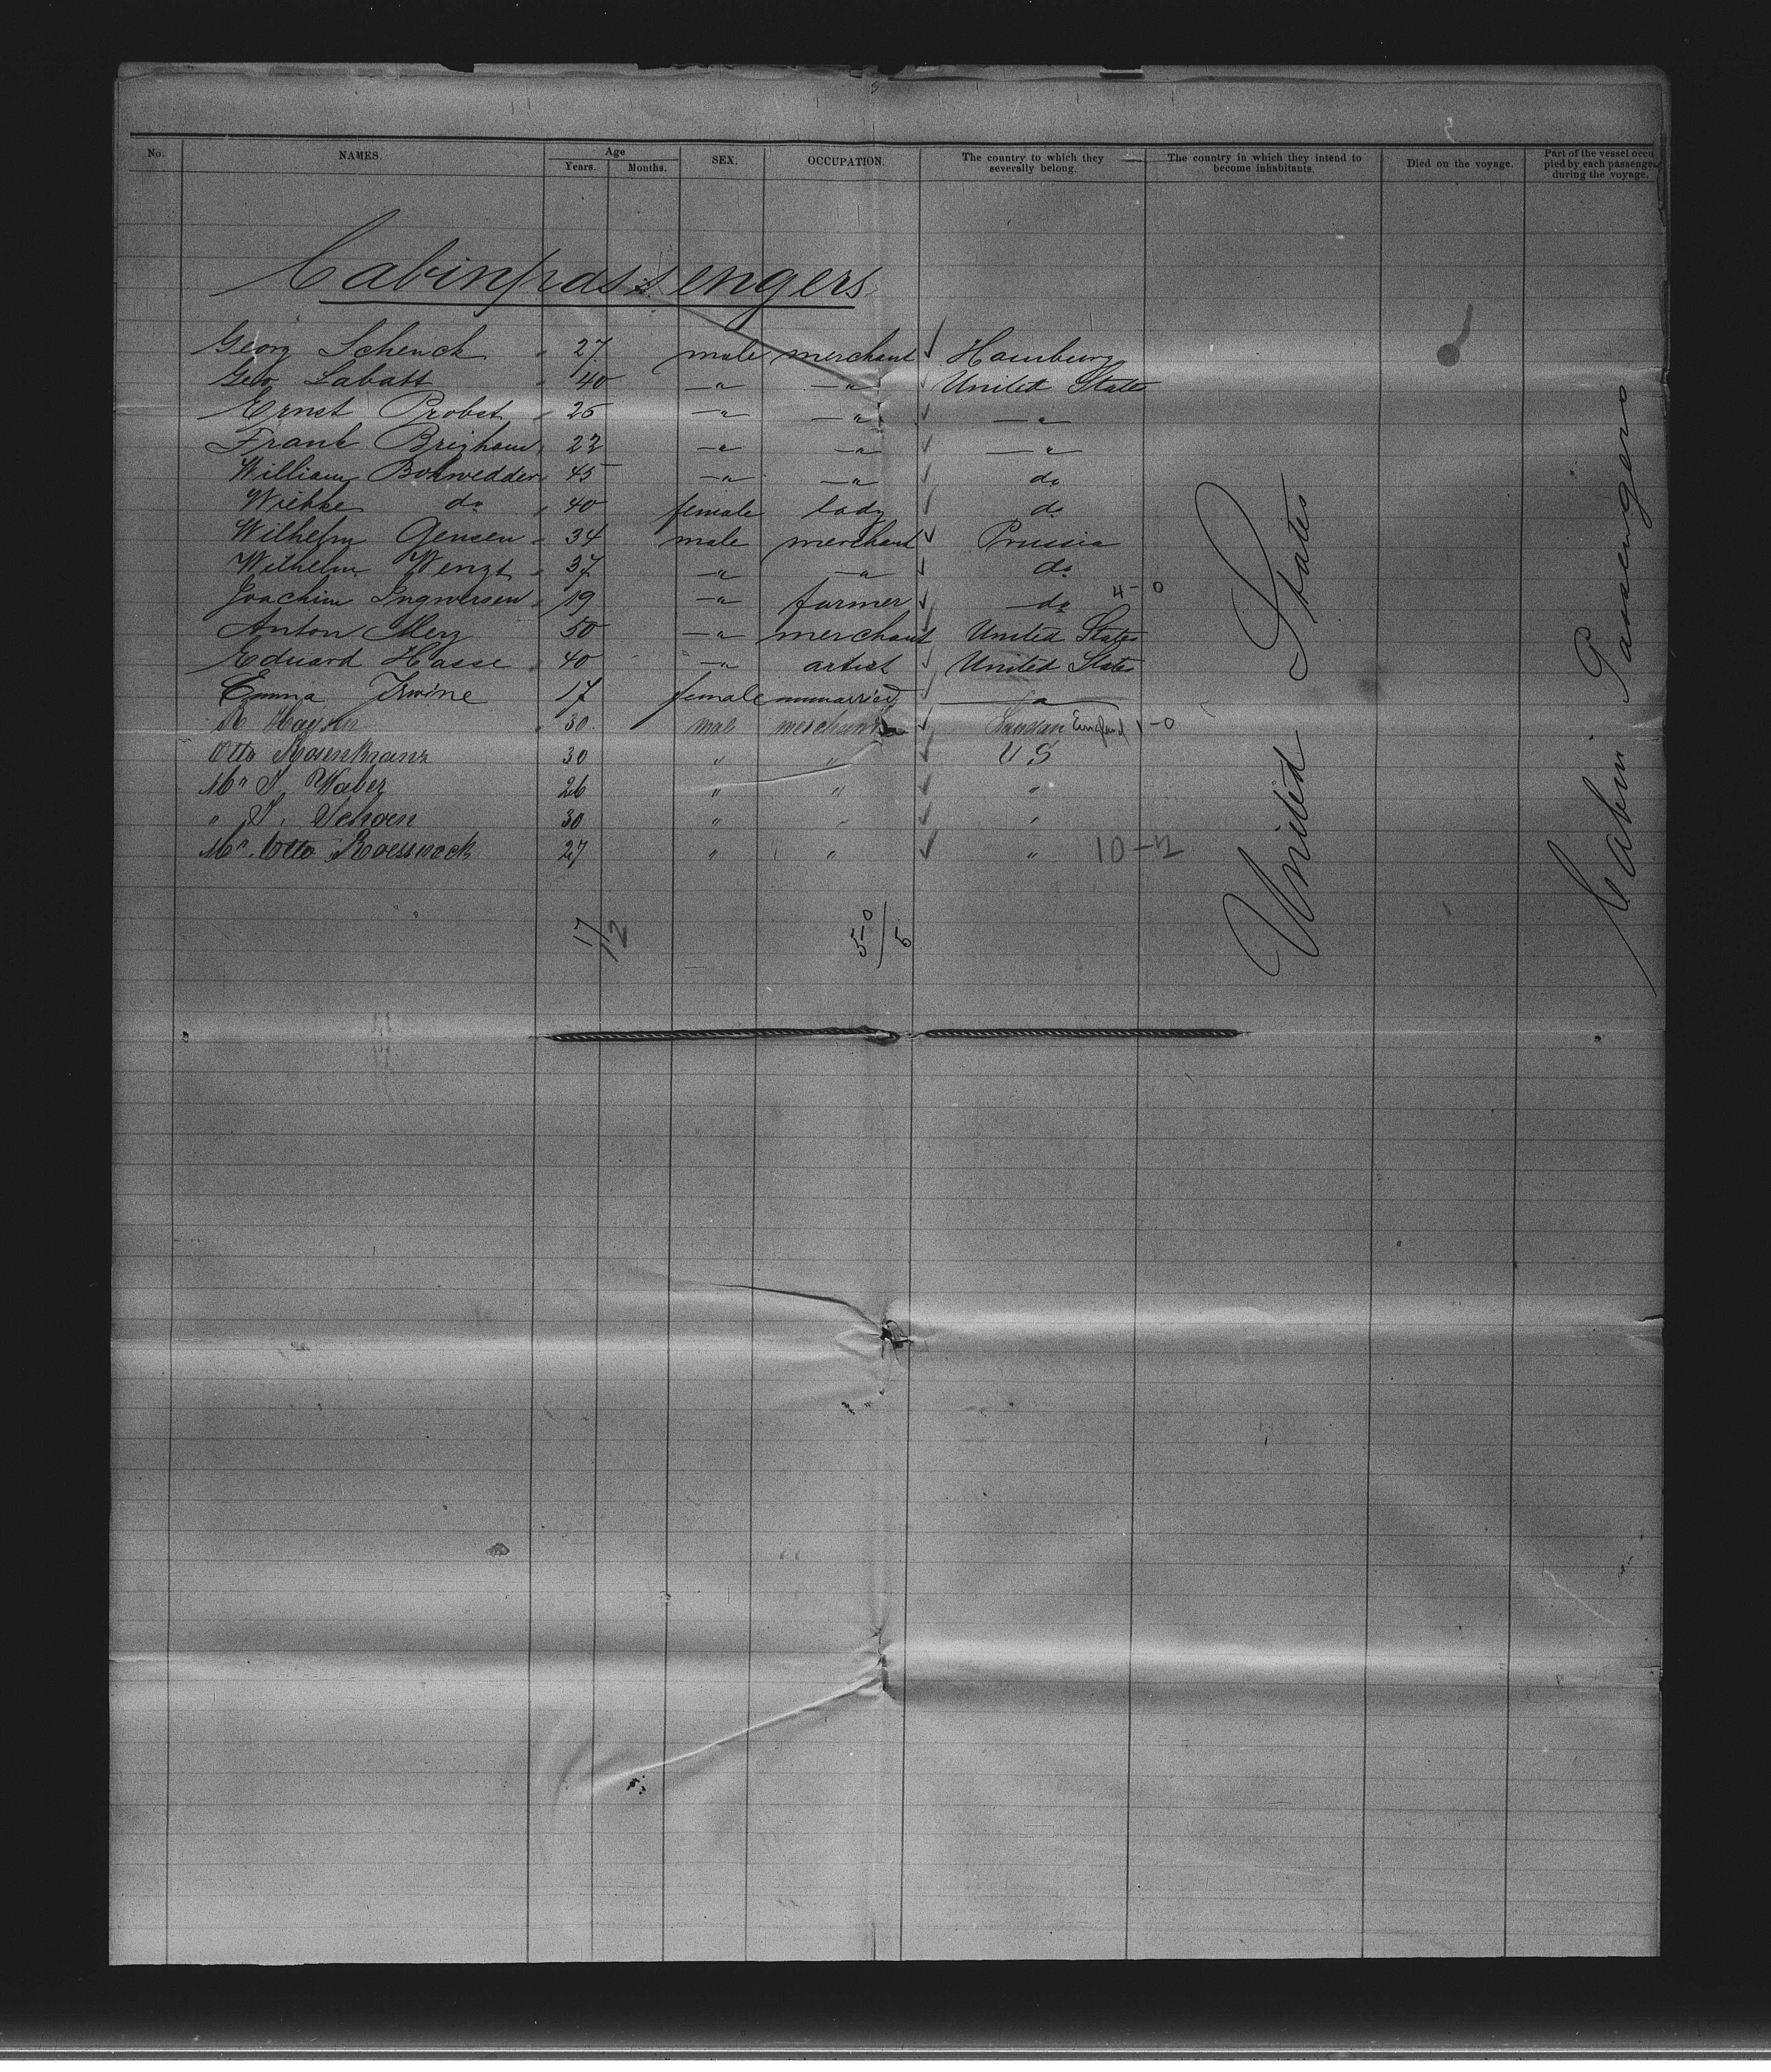 No. NAMES. Age Years. Months. SEX. OCCUPATION. The country to which they severally belong. The country in which they intend to become inhabitants. Died on the voyage. Part of the vessel occupied by each passenger during the voyage.
Cabinpassengers
Georg Schenck " 27 male merchant ✓ Hamburg
Geo Labatt " 40 —"— —"— ✓ United States
Ernst Probst " 25 —"— —"— ✓ —"—
Frank Brigham " 22 —"— —"— ✓ —"—
William Bohwedder " 45 —"— —"— ✓ do
Wiebke do " 40 female lady ✓ do
Wilhelm Gensen " 34 male merchant ✓ Prussia
Wilhelm Wenzt " 37 —"— —"— ✓ do
Joachim Ingwersen " 19 —"— farmer ✓ do 4-0
Anton Merz 50 —"— merchant ✓ United States
Eduard Hasse " 40 —"— artist ✓ United States
Emma Irwine 17 female unmarried ✓ —"—
30 male merchant ✓ England 1-0
Otto Rosenkranz 30 " " ✓ U S
Mr T. Waber 26 " " ✓ "
" T. Schoen 30 " " ✓ "
Mr. Otto 27 " " ✓ " 10-2
17/12 5-0/5
United States
Cabin Passengers